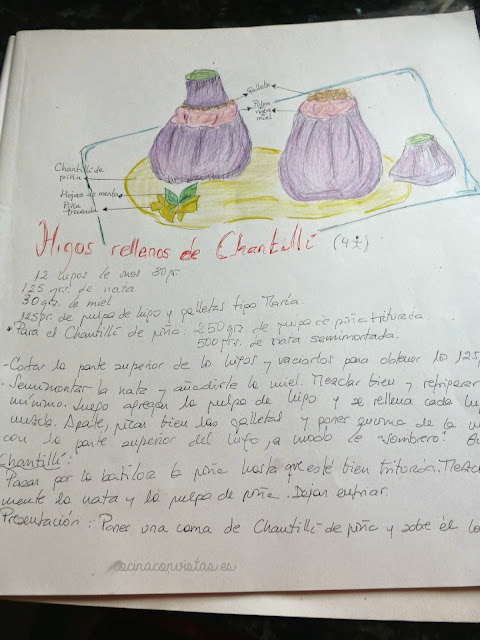 galletas
Pulpa
nata
miel
Chantilli de
piña
Hojas de menta
Piña
troceada
Higos rellenos de Chantillí (4
12 higos de unos 80 gr.
125 grs. de nata.
30 grs. de miel.
125 gr. de pulpa de higo y galletas tipo María.
* Para el Chantillí de piña: 250 grs. de pulpa de piña triturada.
500 grs. de nata semimontada.
- Cortar la parte superior de lo higos y vaciarlos para obtener lo 125
- Semimontar la nata y añadirle la miel. Mezclar bien y refrigerar
mínimo. Luego agregar la pulpa de higo y se rellena cada
mezcla. Aparte, picar bien las galletas y poner encima de la
con la parte superior del higo, a modo de "sombrero".
Chantillí:
Pasar por la batidora la piña hasta que esté bien triturada.
mente la nata y la pulpa de piña. Dejar enfriar.
Presentación: Poner una cama de Chantillí de piña y sobre él
cocinaconvistas.es